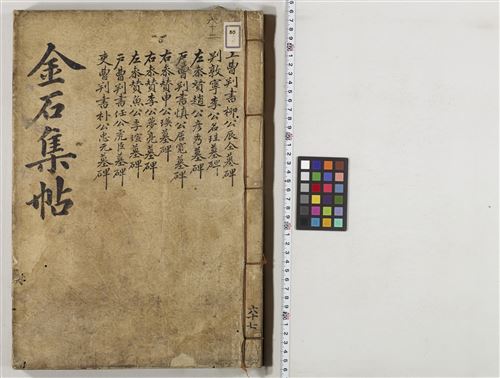 金石集帖
工曹判書柳公辰仝墓碑
判敦寧李公名珪墓碑
左參贊趙公彥秀墓碑
戶曹判書愼公居寬墓碑
右參贊申公瑛墓碑
右參贊李公夢亮墓碑
左參贊魚公季瑄墓碑
戶曹判書任公虎臣墓碑
吏曹判書朴公忠元墓碑
六十七